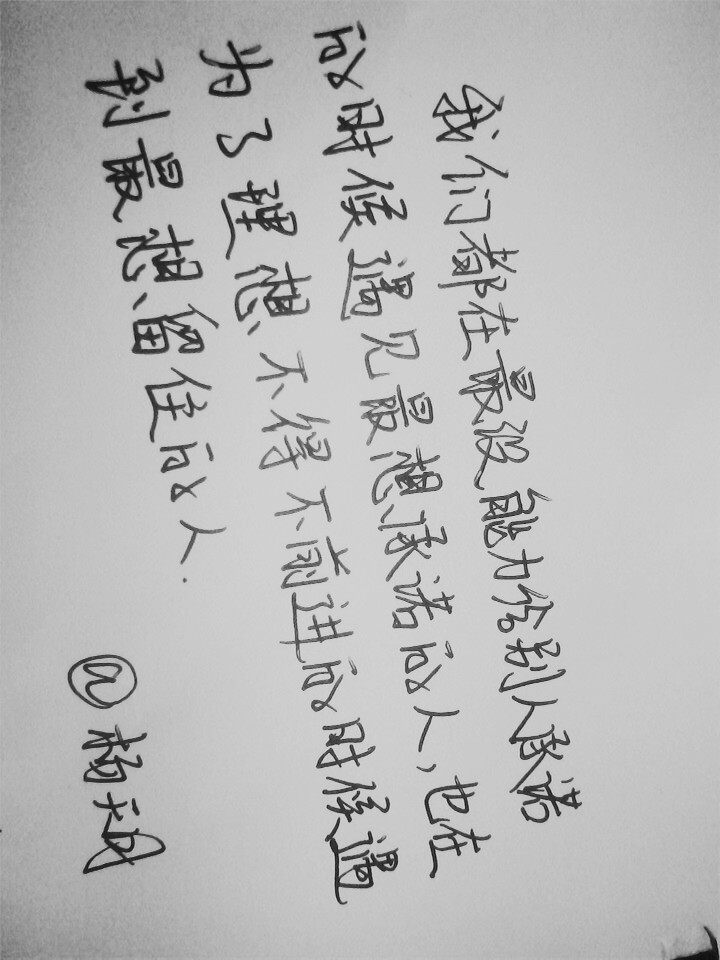 我们都在最没能力给别人承诺
的时候遇见最想承诺的人,也在
为了理想不得不前进的时候遇
到最想留住的人.
@杨天